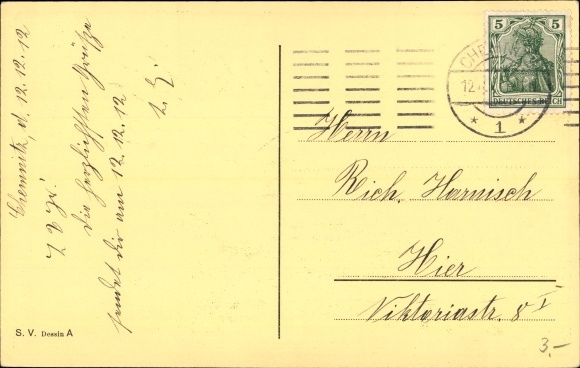 Chemnitz, d. 12.12.12
L. R.!
Die herzlichsten Grüße
sendet dir am 12.12.12
5 5
DEUTSCHES REICH
CHEMNITZ
12.
* 1 *
Herrn
Rich. Harnisch
Hier
Viktoriastr. 8 I
S. V. Dessin A
3,-